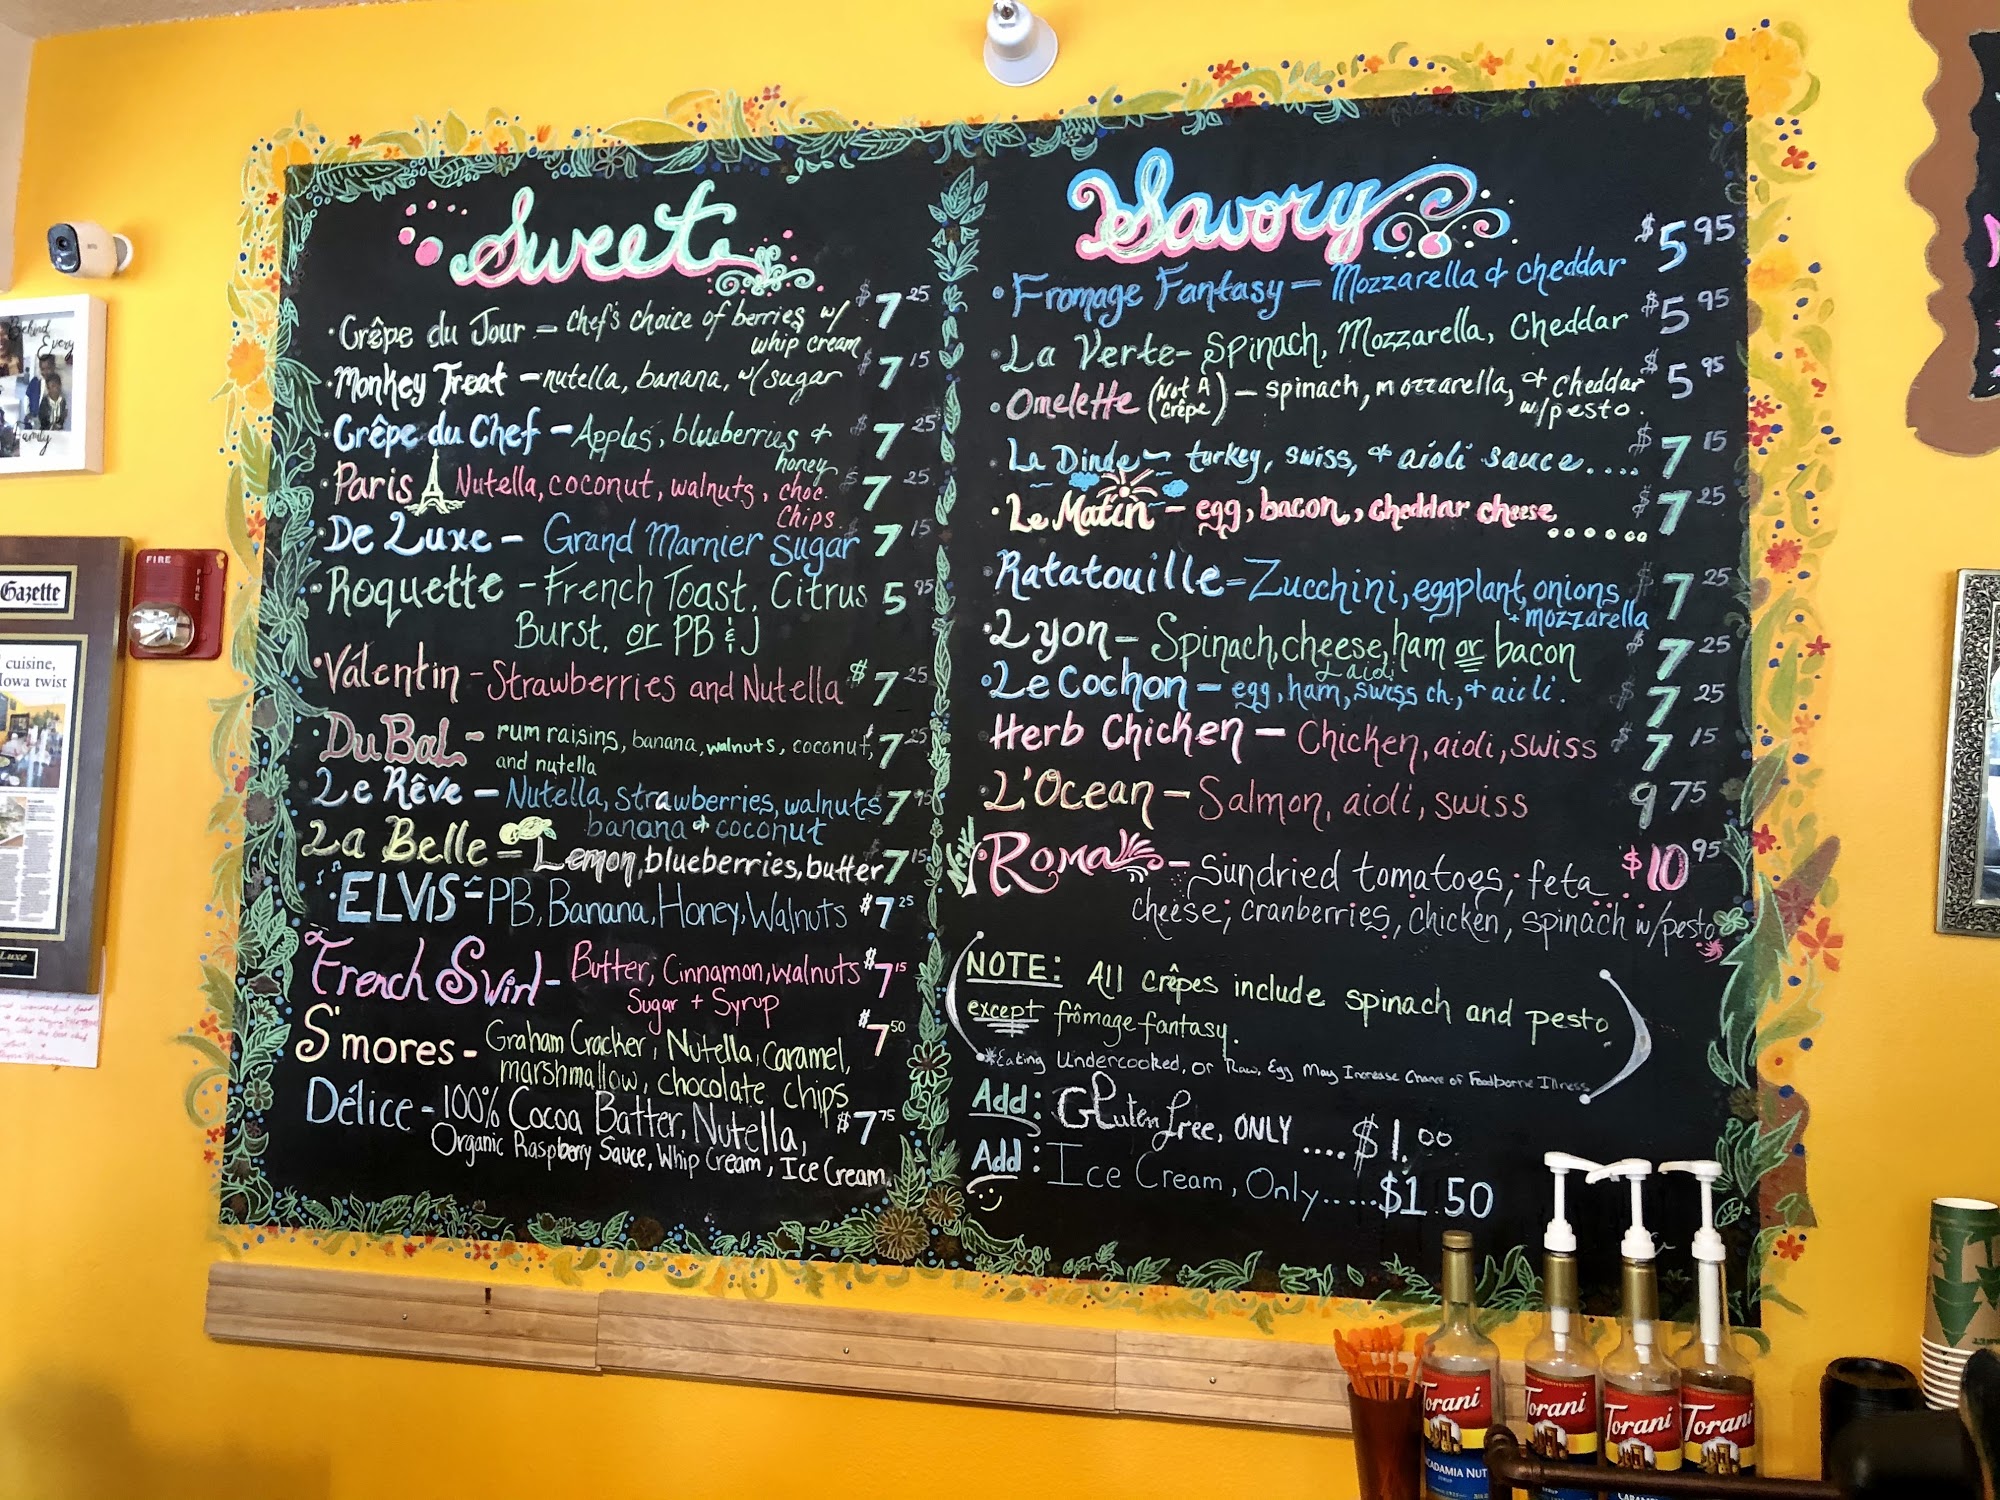 Sweet
• Crêpe du Jour – chef's choice of berries w/ $7 25
whip cream
• Monkey Treat – nutella, banana, w/ sugar $7 15
Crêpe du Chef – Apples, blueberries + $7 25
honey
Paris Nutella, coconut, walnuts, choc. $7 25
chips
De Luxe – Grand Marnier Sugar 7 15
Roquette – French Toast, Citrus 5 95
Burst, or PB & J
• Valentin – Strawberries and Nutella $7 25
Du Bal – rum raisins, banana, walnuts, coconut, 7 25
and nutella
Le Rêve – Nutella, strawberries, walnuts 7 95
banana + coconut
La Belle = Lemon, blueberries, butter 7 15
ELVIS – PB, Banana, Honey, Walnuts $7 25
French Swirl – Butter, Cinnamon, walnuts $7 15
Sugar + Syrup
S'mores – Graham Cracker, Nutella, Caramel, $7 50
marshmallow, chocolate chips
Délice – 100% Cocoa Batter, Nutella, $7 75
Organic Raspberry Sauce, Whip Cream, Ice Cream
Savory
• Fromage Fantasy – Mozzarella & cheddar $5 95
• La Verte – Spinach, Mozzarella, Cheddar $5 95
• Omelette (Not A Crêpe) – spinach, mozzarella, & cheddar $5 95
w/pesto.
• La Dinde – turkey, swiss, + aioli sauce.... $7 15
• Le Matin – egg, bacon, cheddar cheese...... $7 25
• Ratatouille = Zucchini, eggplant, onions, $7 25
+ mozzarella
• Lyon – Spinach, cheese, ham or bacon $7 25
& aioli
• Le Cochon – egg, ham, swiss ch., + aioli. $7 25
Herb Chicken – Chicken, aioli, swiss $7 15
L'Ocean – Salmon, aioli, swiss 9 75
New! • Roma – Sundried tomatoes, feta $10 95
cheese, cranberries, chicken, spinach w/pesto
NOTE: All crêpes include spinach and pesto
except frômage fantasy.
*Eating Undercooked, or Raw, Egg May Increase Chance of Foodborne Illness
Add: Gluten free, ONLY ....$1.00
Add: Ice Cream, Only.....$1.50
Behind
Every
Family
FIRE
FIRE
Gazette
cuisine,
Iowa twist
Luxe
Torani
Torani
Torani
Torani
MACADAMIA NUT